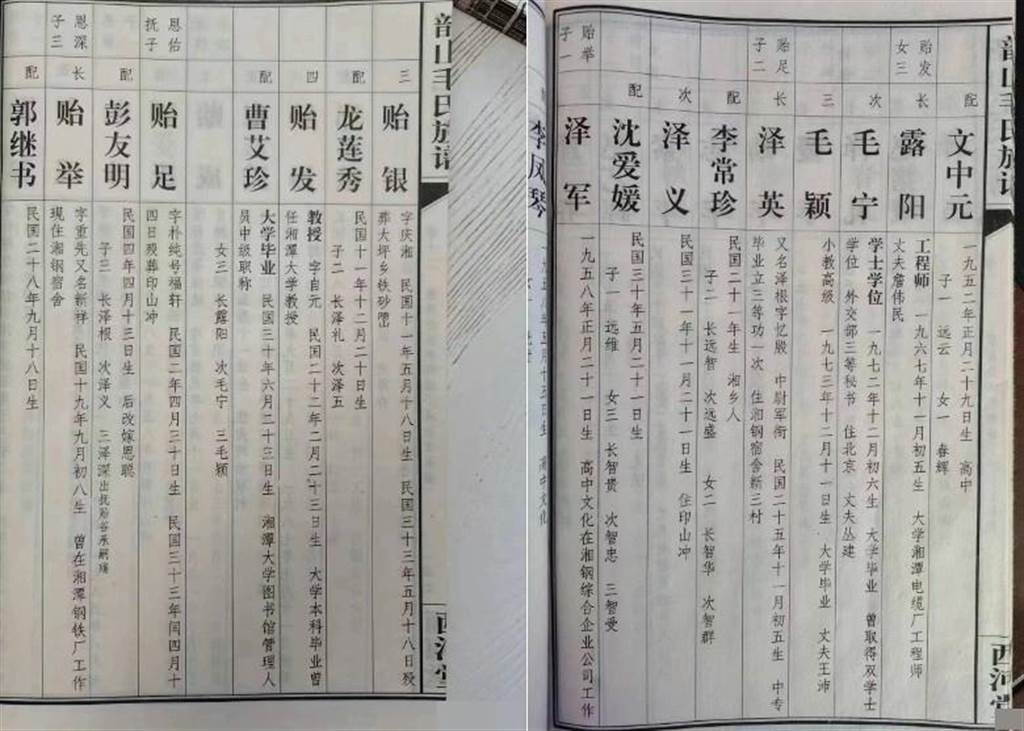 韶山毛氏族谱
西河堂
三 贻银
字庆湘 民国十一年五月十八日生 民国三十三年五月十八日殁
葬大坪乡铁砂
配 龙莲秀
民国十一年十二月二十日生
子二 长泽礼 次泽五
四 贻发
教授 字自元 民国二十二年二月二十三日生 大学本科毕业曾
任湘潭大学教授
配 曹艾珍
大学毕业 民国三十年六月二十三日生 湘潭大学图书馆管理人
员中级职称
女三 长露阳 次毛宁 三毛颖
恩佑
抚子
贻足
字朴纯号福轩 民国二年四月三十日生 民国三十三年闰四月十
四日殁葬印山冲
配 彭友明
民国四年四月十三日生 后改嫁恩聪
子三 长泽根 次泽义 三泽深出抚贻谷承嗣
恩深
子三
长 贻举
字重先又名新祥 民国十九年九月初八生 曾在湘潭钢铁厂工作
现住湘钢宿舍
配 郭继书
民国二十八年九月十八日生
韶山毛氏族谱
西河堂
配 文中元
一九五二年正月二十九日生 高中
子一 远云 女一 春辉
贻发
女三
长 露阳
工程师 一九六七年十一月初五生 大学湘潭电缆厂工程师
丈夫詹伟民
次 毛宁
学士学位 一九七二年十二月初六生 大学毕业 曾取得双学士
学位 外交部三等秘书 住北京 丈夫丛建
三 毛颖
小教高级 一九七三年十二月十一日生 大学毕业 丈夫王沛
贻足
子二
长 泽英
又名泽根字忆殷 中尉军衔 民国二十五年十一月初五生 中专
毕业立三等功一次 住湘钢宿舍新三村
配 李常珍
民国二十一年生 湘乡人
子二 长远智 次远盛 女二 长智华 次智群
次 泽义
民国三十一年十一月二十一日生 住印山冲
配 沈爱媛
民国三十年五月二十一日生
子一 远维 女三 长智贵 次智忠 三智爱
贻举
子一
泽军
一九五八年正月二十一日生 高中文化在湘钢综合企业公司工作
李凤琴